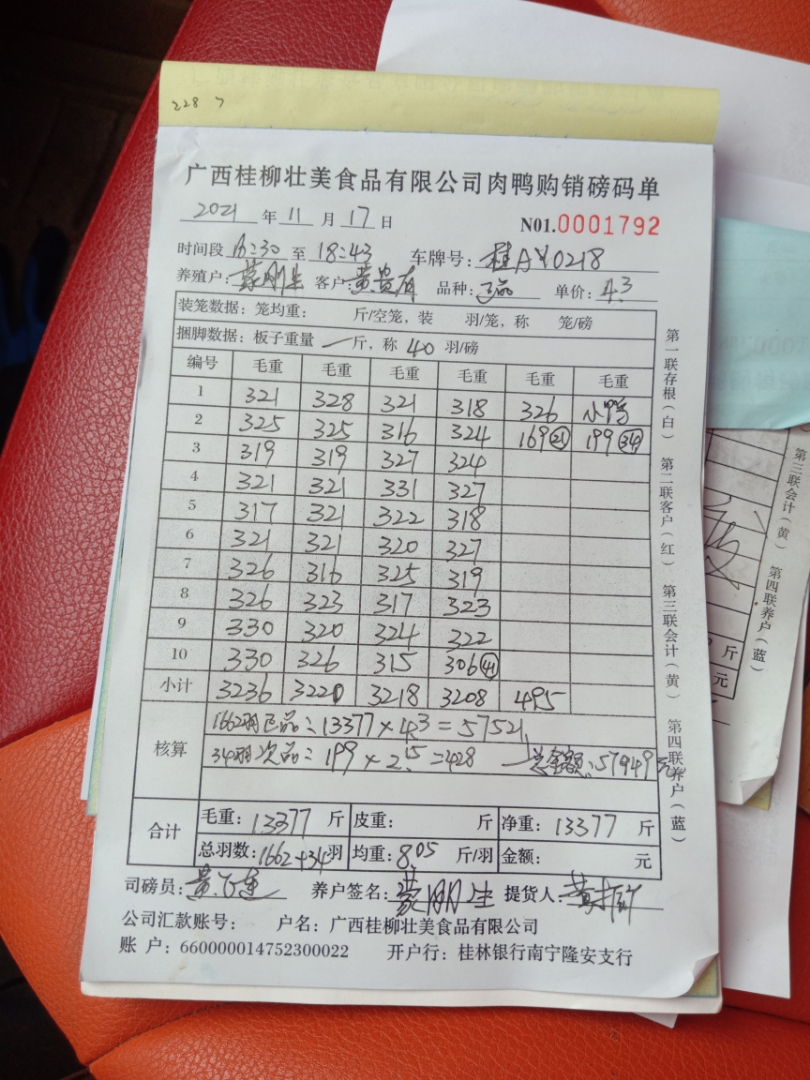 228 7
广西桂柳壮美食品有限公司肉鸭购销磅码单
2021 年 11 月 17 日 N01.0001792
时间段 16:30 至 18:43 车牌号: 桂AY0218
养殖户: 蒙刚生 客户: 黄贵有 品种: 正品 单价: 4.3
装笼数据: 笼均重: 斤/空笼, 装 羽/笼, 称 笼/磅
捆脚数据: 板子重量 一 斤, 称 40 羽/磅
编号 毛重 毛重 毛重 毛重 毛重 毛重
1 321 328 321 318 326 小鸭
2 325 325 316 324 169㉑ 199㉞
3 319 319 327 324
4 321 321 331 327
5 317 321 322 318
6 321 321 320 327
7 326 316 325 319
8 326 323 317 323
9 330 320 324 322
10 330 326 315 306㊹
小计 3236 3220 3218 3208 495
核算
1662羽正品: 13377×4.3=57521
34羽次品: 199×2.15=428 总金额: 57949元
合计
毛重: 13377 斤 皮重: 斤 净重: 13377 斤
总羽数: 1662+34羽 均重: 8.05 斤/羽 金额: 元
司磅员: 养户签名: 蒙刚生 提货人:
公司汇款账号: 户名: 广西桂柳壮美食品有限公司
账 户: 660000014752300022 开户行: 桂林银行南宁隆安支行
第一联存根(白) 第二联客户(红) 第三联会计(黄) 第四联养户(蓝)
第三联会计(黄) 第四联养户(蓝)
斤
元